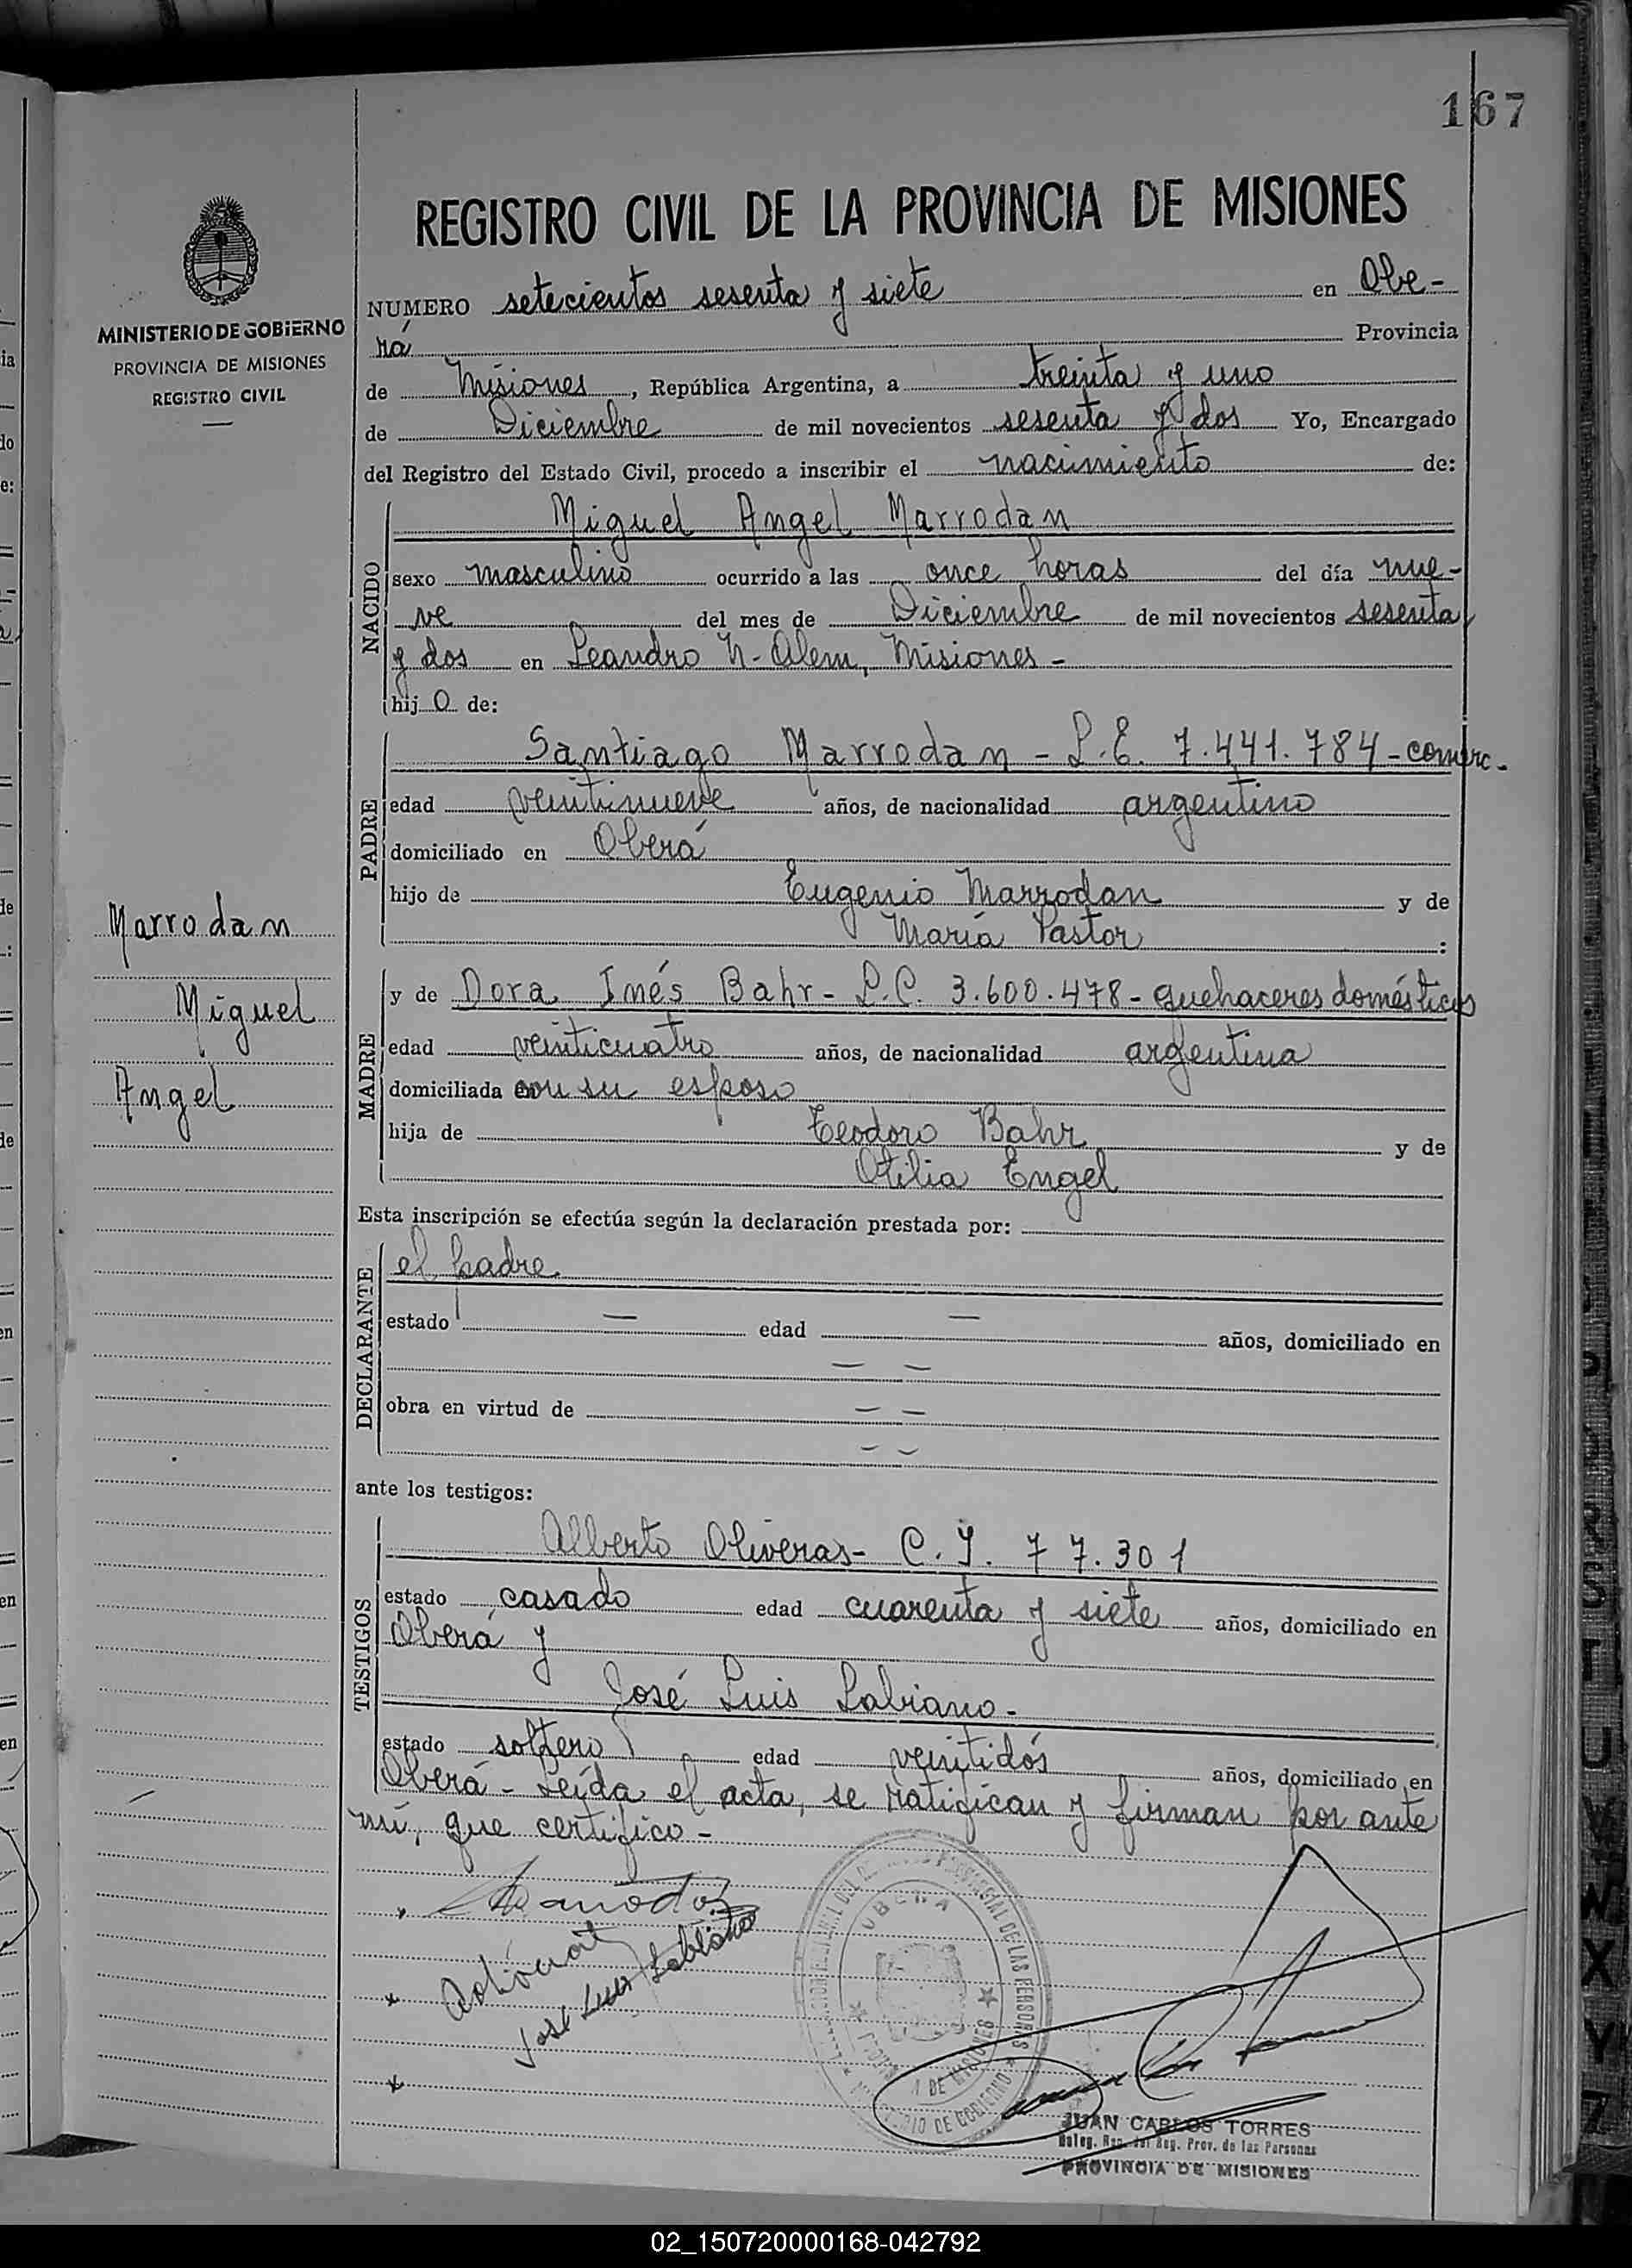 167
REGISTRO CIVIL DE LA PROVINCIA DE MISIONES
MINISTERIO DE GOBIERNO
PROVINCIA DE MISIONES
REGISTRO CIVIL
NUMERO setecientos sesenta y siete en Obe-
rá Provincia
de Misiones, República Argentina, a treinta y uno
de Diciembre de mil novecientos sesenta y dos Yo, Encargado
del Registro del Estado Civil, procedo a inscribir el nacimiento de:
NACIDO
Miguel Angel Marrodan
sexo masculino ocurrido a las once horas del día nue-
ve del mes de Diciembre de mil novecientos sesenta
y dos en Leandro N. Alem, Misiones -
hij o de:
PADRE
Santiago Marrodan - L.E. 7.441.784 - comerc.
edad veintinueve años, de nacionalidad argentino
domiciliado en Oberá
hijo de Eugenio Marrodan y de
María Pastor :
Marrodan
Miguel
Angel
MADRE
y de Dora Inés Bahr - L.C. 3.600.478 - quehaceres domésticos
edad veinticuatro años, de nacionalidad argentina
domiciliada con su esposo
hija de Teodoro Bahr y de
Otilia Engel
Esta inscripción se efectúa según la declaración prestada por:
DECLARANTE
el padre
estado — edad — años, domiciliado en
— —
obra en virtud de — —
— —
ante los testigos:
TESTIGOS
Alberto Oliveras - C.I. 77.301
estado casado edad cuarenta y siete años, domiciliado en
Oberá y
José Luis Labiano -
estado soltero edad veintidós años, domiciliado en
Oberá - Leída el acta, se ratifican y firman por ante
mí, que certifico -
José Luis Labiano
OBERA
PROVINCIAL DE LAS PERSONAS
DE MISIONES
DE GOBIERNO
JUAN CARLOS TORRES
Reg. Prov. de las Personas
PROVINCIA DE MISIONES
02_150720000168-042792